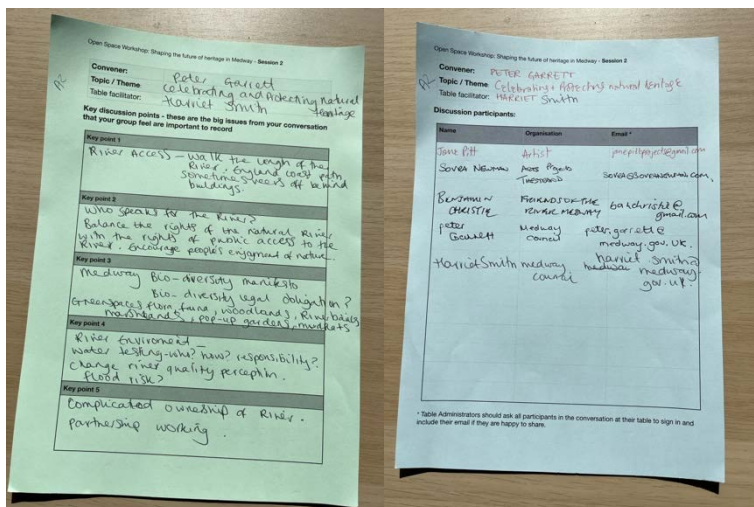 Open Space Workshop: Shaping the future of heritage in Medway - Session 2
Convener: Peter Garrett
Topic / Theme Celebrating and Protecting natural heritage
Table facilitator: Harriet Smith
Key discussion points - these are the big issues from your conversation
that your group feel are important to record
Key point 1
River Access – walk the length of the
River. England coast path
sometimes veers off behind
buildings.
Key point 2
Who speaks for the River?
Balance the rights of the natural River
with the rights of public access to the
River. Encourage people's enjoyment of nature.
Key point 3
Medway Bio-diversity manifesto
Bio-diversity legal obligation?
Greenspaces, flora, fauna, woodlands, River
marshlands, pop-up gardens, mudflats
Key point 4
River Enviroment –
Water testing - who? how? responsibility?
Change river quality perception.
flood risk?
Key point 5
Complicated ownership of River.
partnership working.
Open Space Workshop: Shaping the future of heritage in Medway - Session 2
Convener: PETER GARRETT
Topic / Theme Celebrating + Protecting natural heritage
Table facilitator: HARRIET Smith
Discussion participants:
Name Organisation Email *
Jane Pitt Artist
SOVRA NEWMAN
BENJAMIN FRIENDS OF THE
CHRISTIE RIVER MEDWAY gmail.com
peter Medway peter.garrett@
Garrett Council medway.gov.uk.
Harriet Smith medway harriet.smith2
council medway.
gov.uk?
* Table Administrators should ask all participants in the conversation at their table to sign in and
include their email if they are happy to share.